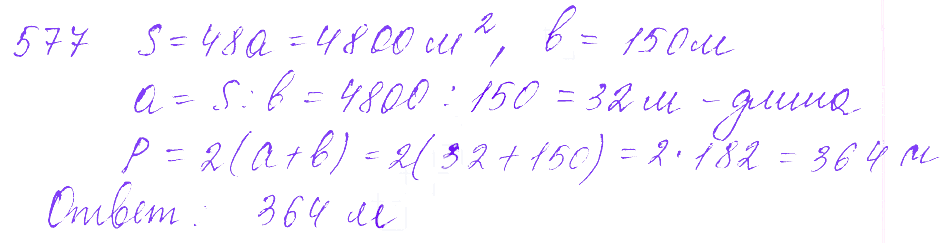 577 S = 48a = 4800 м², b = 150 м
a = S : b = 4800 : 150 = 32 м – длина
P = 2(a+b) = 2(32+150) = 2·182 = 364 м
Ответ: 364 м